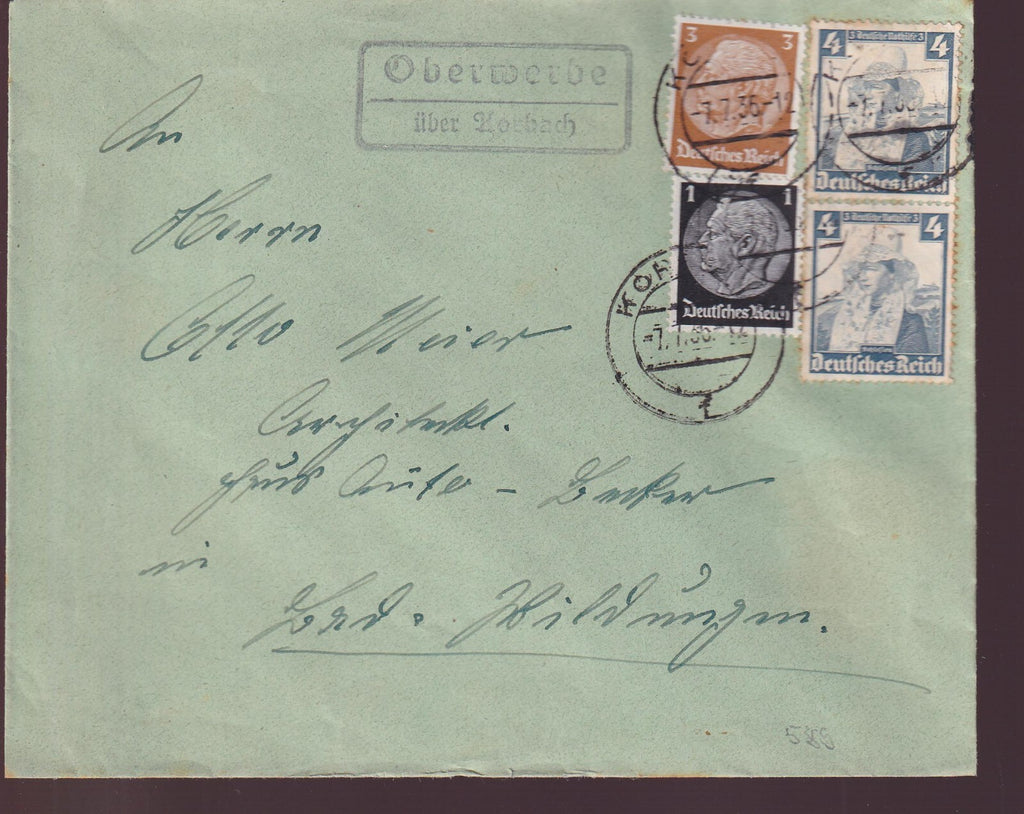 Oberwerbe
über Korbach
3 3
Deutsches Reich
4 Deutsche Nothilfe 4
Deutsches Reich
1 1
Deutsches Reich
4 Deutsche Nothilfe 4
Deutsches Reich
KOR
-7.7.36-12
An
Herrn
Otto Meier
Architekt.
Haus Auto - Becker
in
Bad. Wildungen.
586